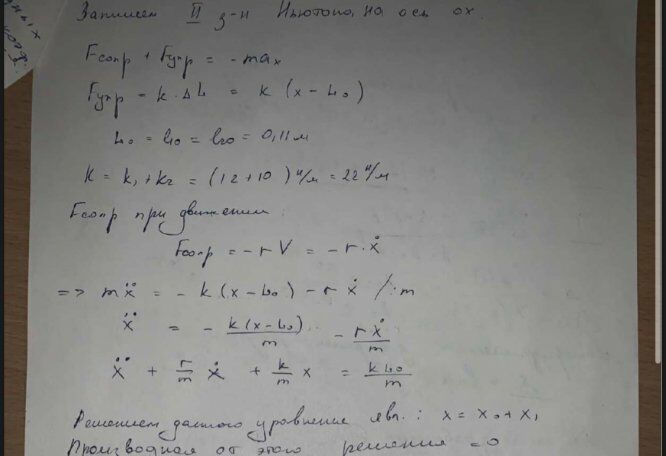 Запишем II з-н Ньютона, на ось ox.
Fсопр + Fупр = - max
Fупр = k · ΔL = k (x - L0)
L0 = l10 = l20 = 0,11 м
K = k1 + k2 = (12 + 10) н/м = 22 н/м
Fсопр при движении:
Fсопр = - r V = - r · ẋ
=> mẍ = - k (x - L0) - r ẋ /:m
ẍ = - k(x - L0)/m - rẋ/m
ẍ + r/m ẋ + k/m x = kL0/m
Решением данного уровнение явл.: x = x0 + x1
Производная от этого решения = 0